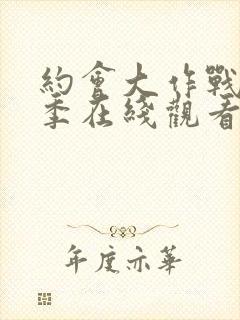 約會大作戰
季在綫觀看
年度亦華